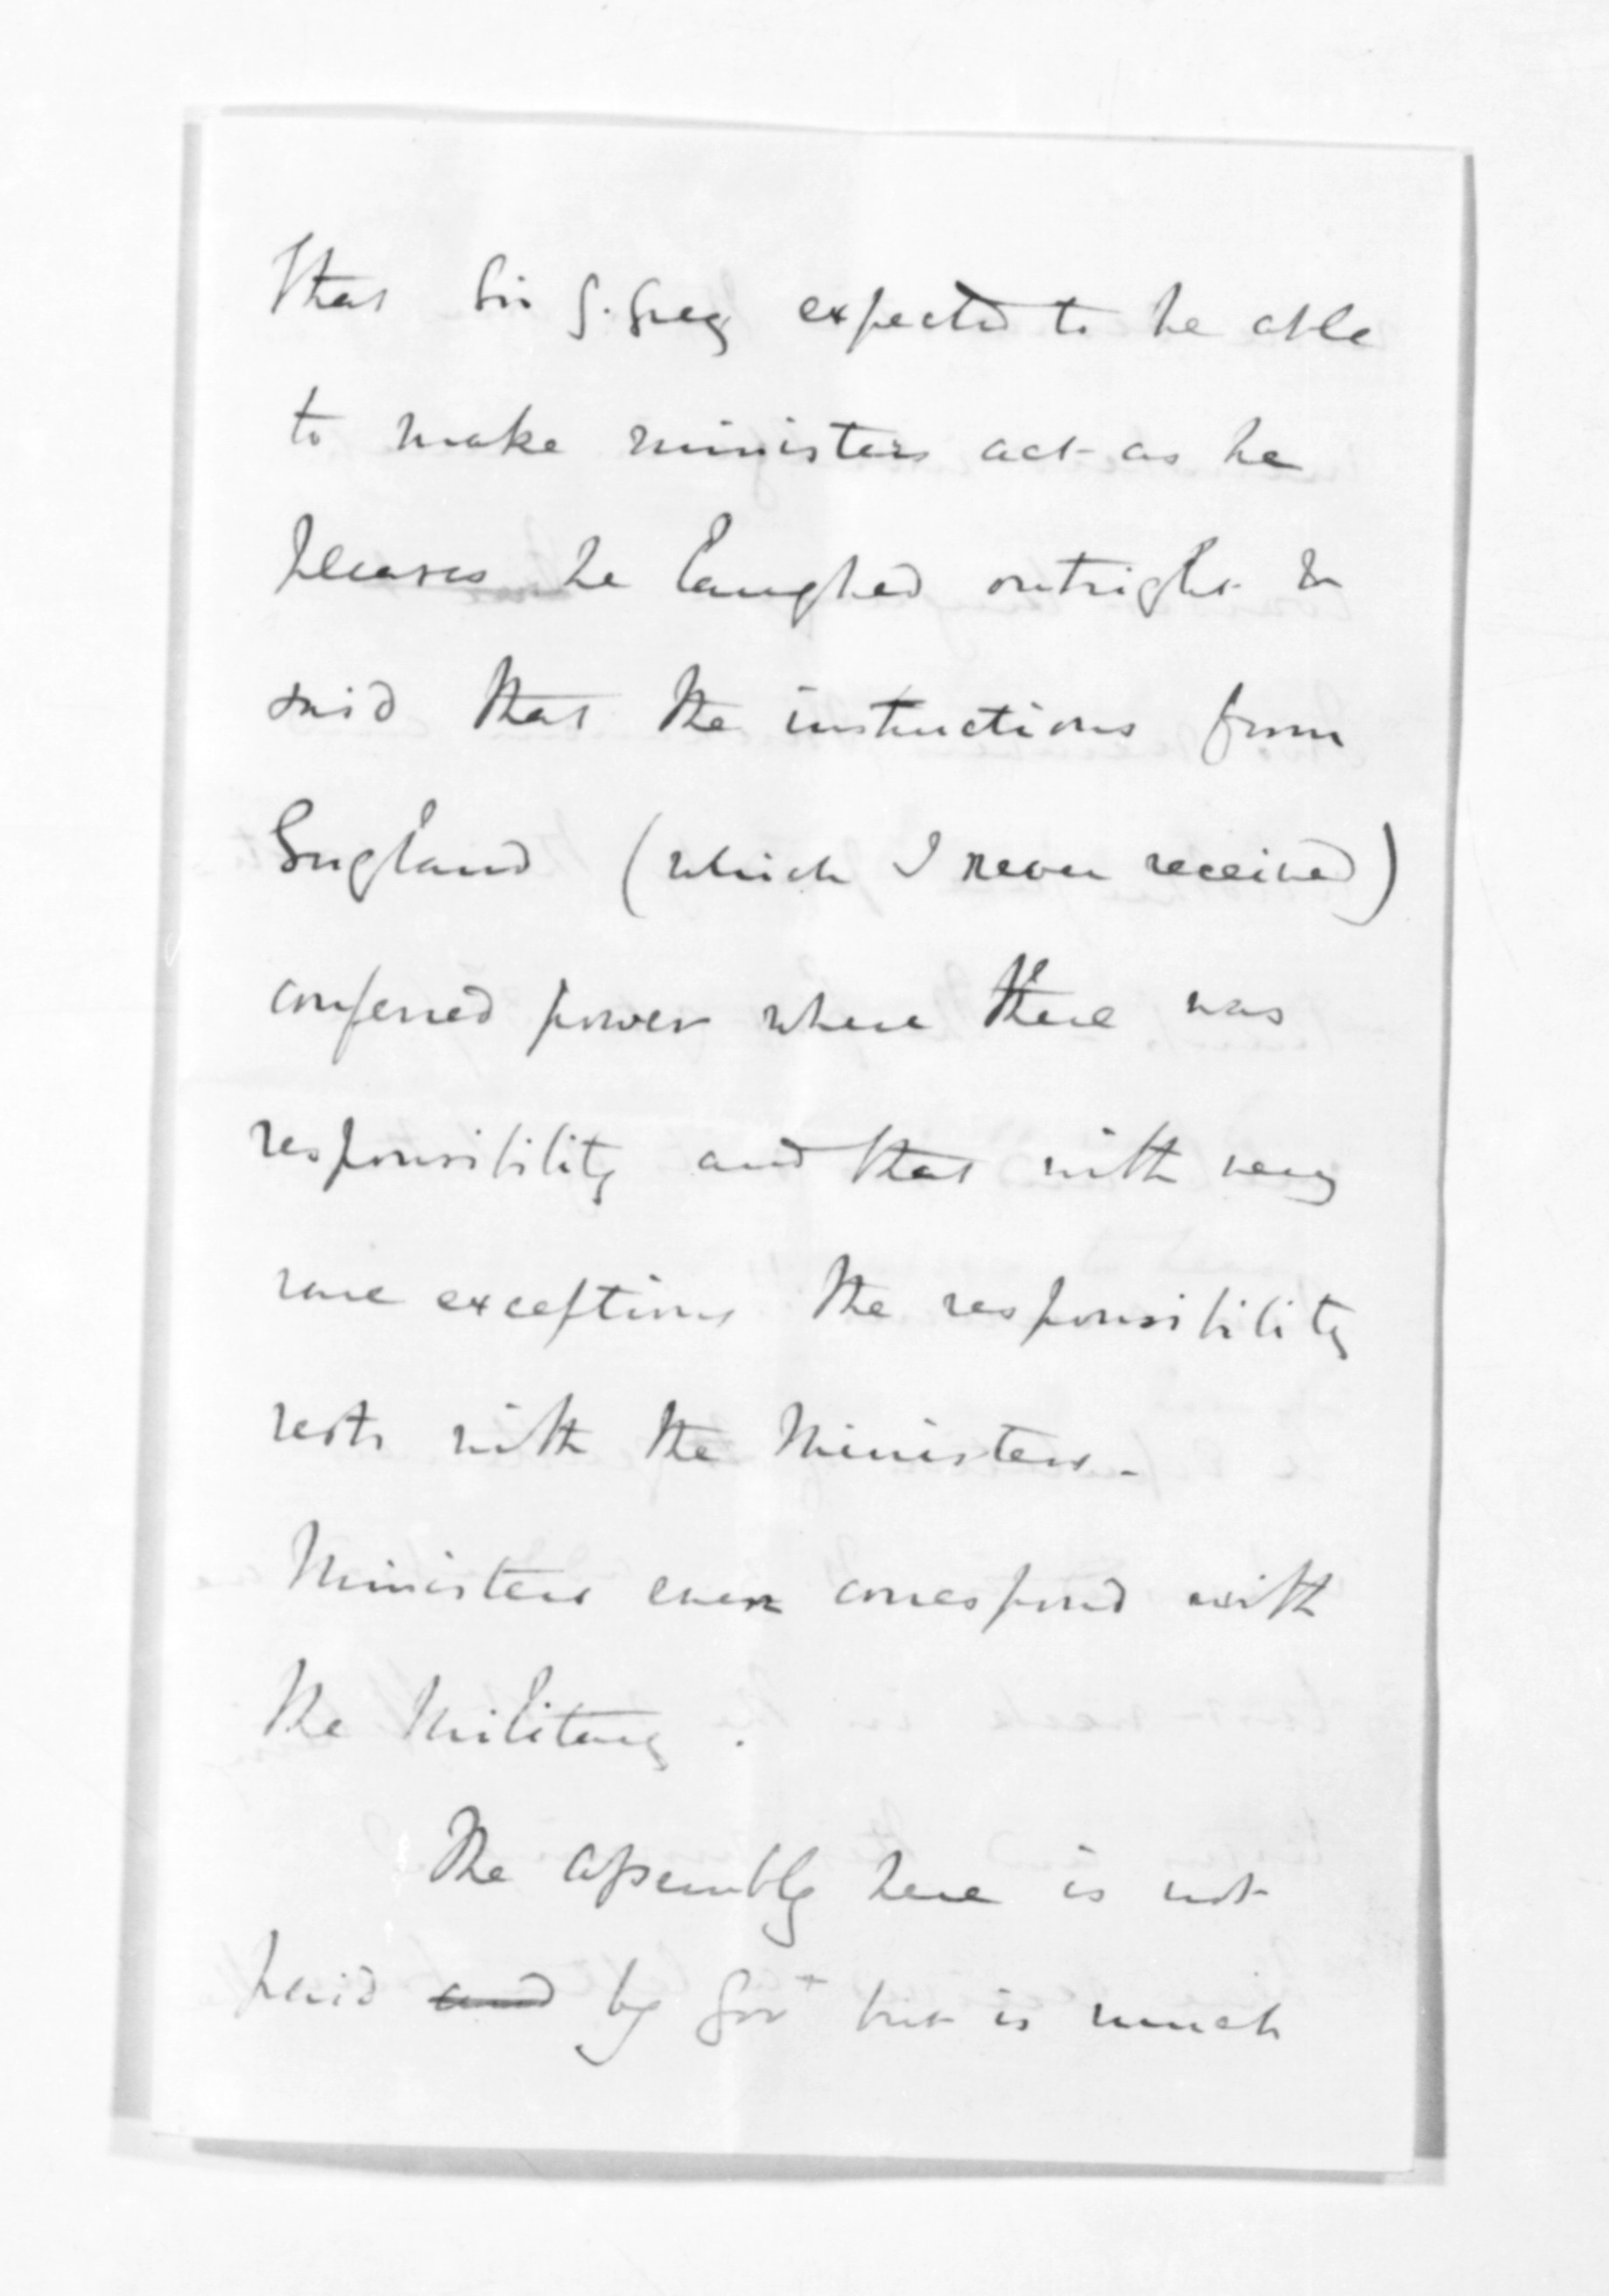 that Sir G. Grey expected to be able
to make ministers act as he
pleases he laughed outright &
said that the instructions from
England (which I never received)
conferred power where there was
responsibility and that with very
rare exceptions the responsibility
rests with the Ministers.
Ministers even correspond with
the Military.
The Assembly here is not
paid and by Govt but is much